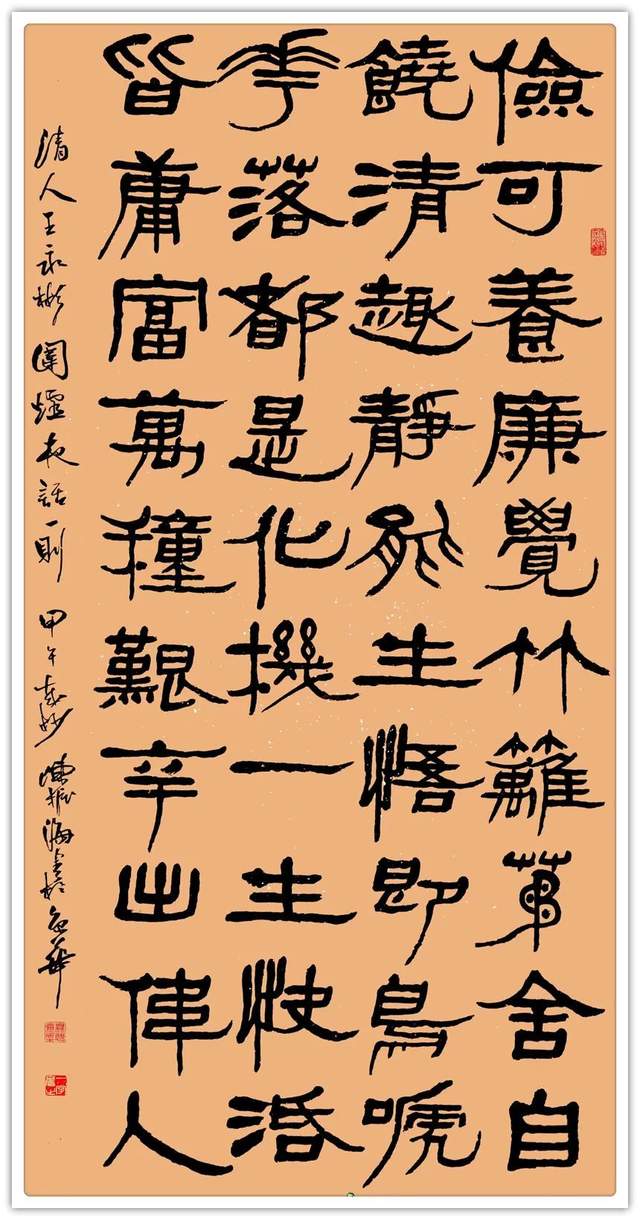 儉可養廉覺竹籬茅舍自
饒清趣靜能生悟即鳥嗁
花落都是化機一生快活
皆庸富萬種艱辛出偉人
清人王永彬圍爐夜話一則 甲午歲杪 陳振海書於京華